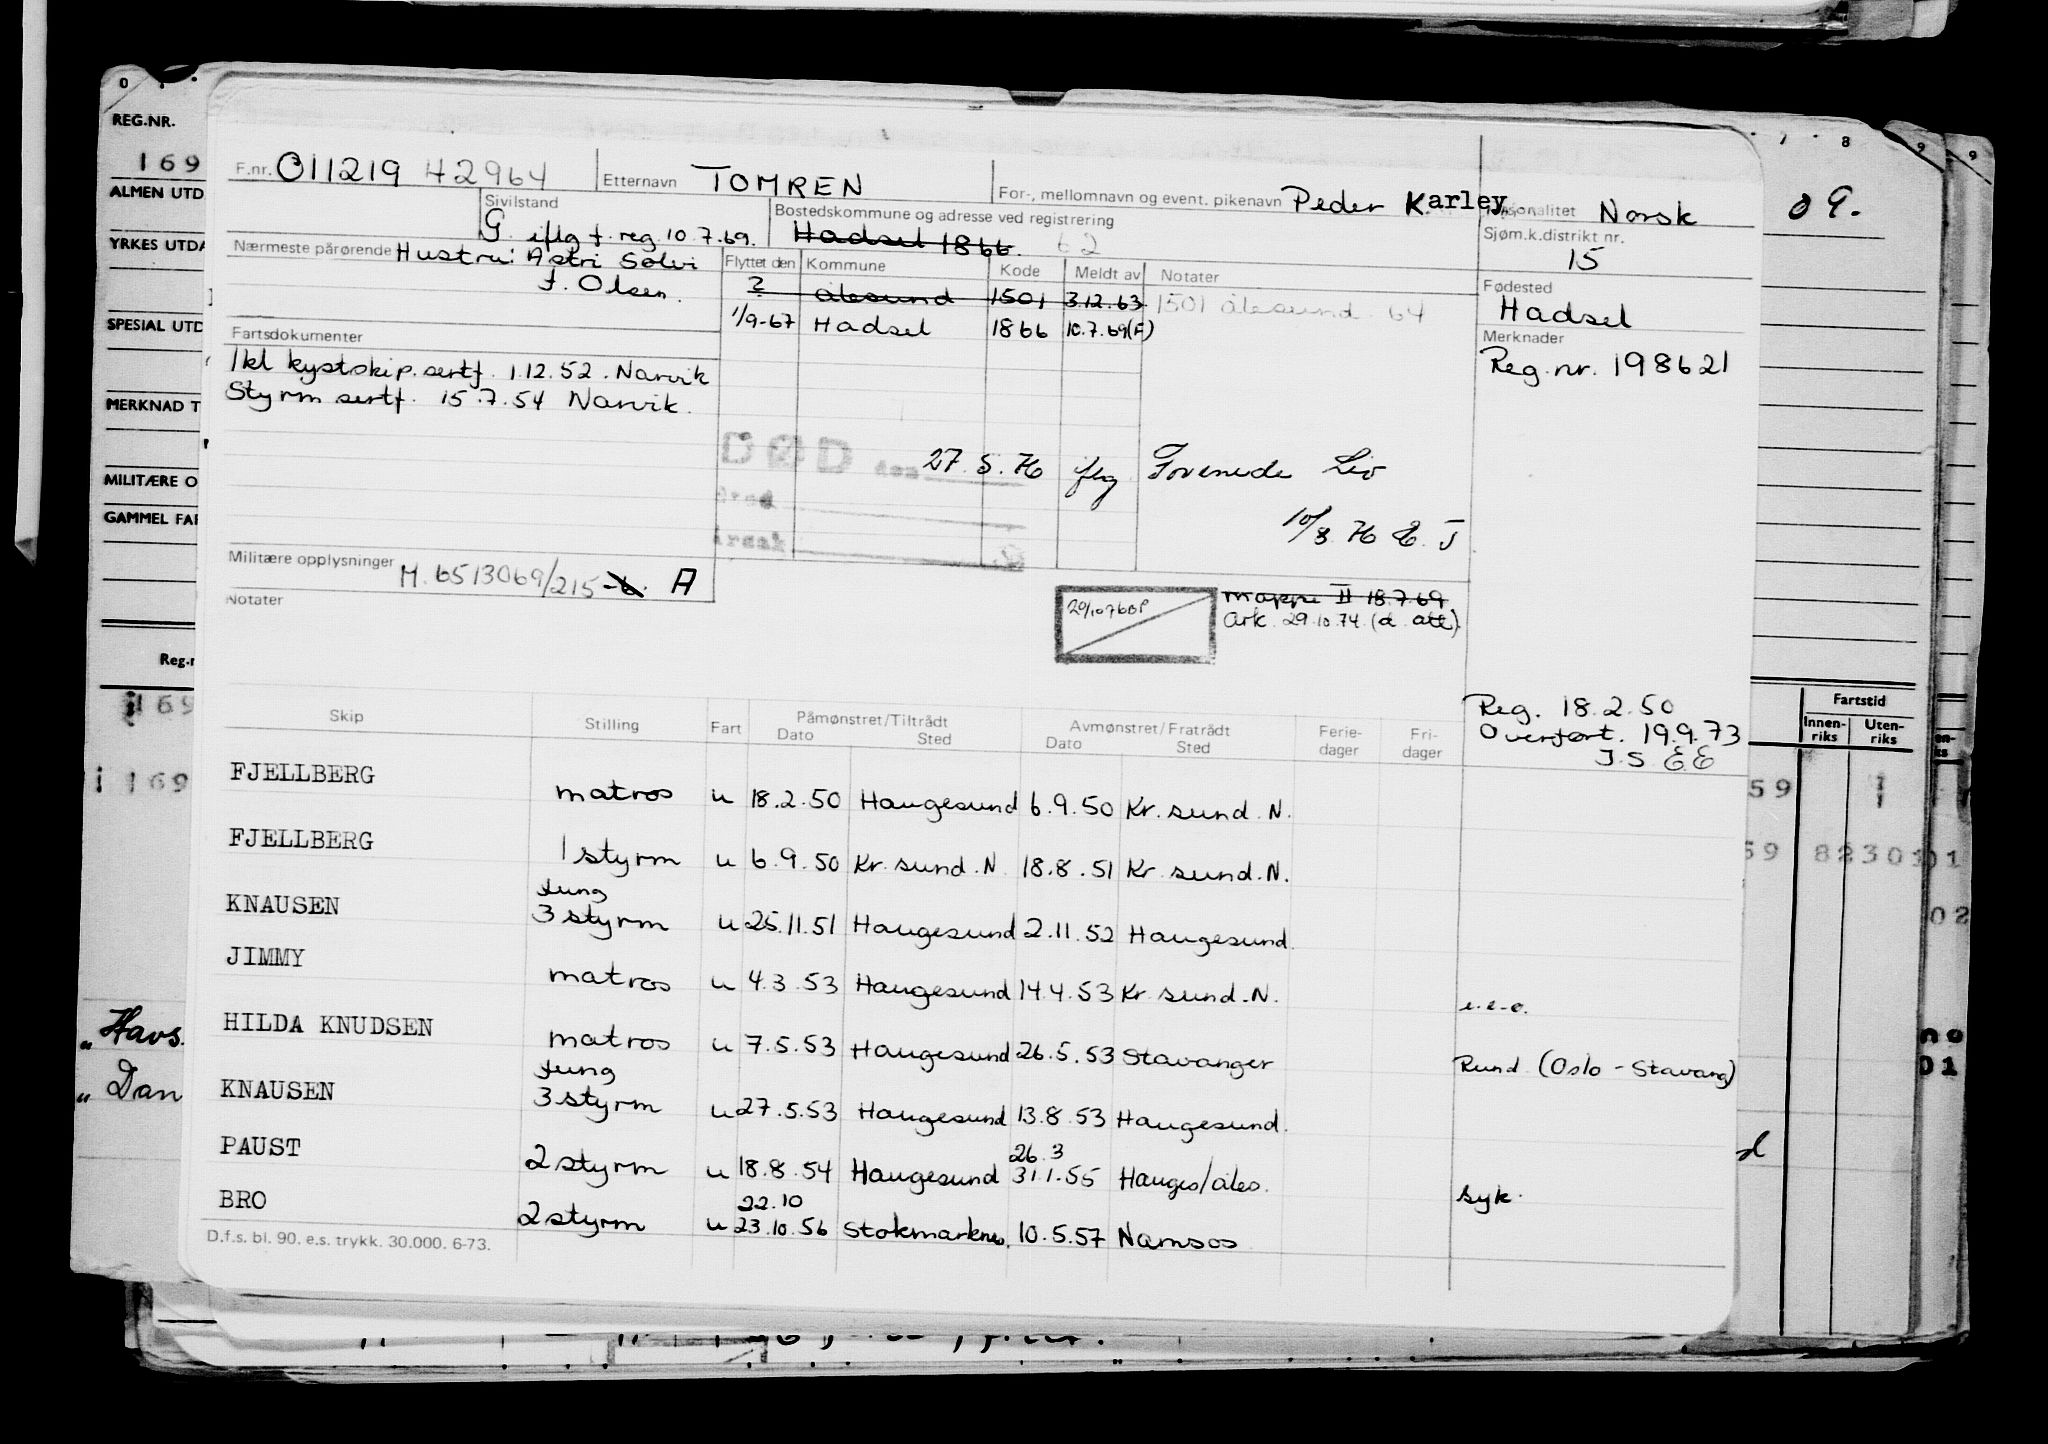 REG.NR.
169
ALMEN UTD
YRKES UTDA
SPESIAL UTD
MERKNAD T
MILITÆRE O
GAMMEL FAR
Reg.n
169
i 169
"Havs.
"Dan
F.nr. 011219 42964 Etternavn TOMREN For-, mellomnavn og event. pikenavn Peder Karley Nasjonalitet Norsk
Sivilstand G iflg f. reg. 10.7.69. Bostedskommune og adresse ved registrering Hadsel 1866. 62 Sjøm.k.distrikt nr. 15
Nærmeste pårørende Hustru: Astri Solvi
f. Olsen.
Flyttet den Kommune Kode Meldt av Notater
? Ålesund 1501 3.12.63 1501 ålesund 64
1/9-67 Hadsel 1866 10.7.69(F)
Fødested
Hadsel
Merknader
Reg.nr. 198621
Fartsdokumenter
1kl kystskip.sertf. 1.12.52. Narvik
Styrm sertf. 15.7.54 Narvik.
DØD den 27.5.76
Sted
Årsak
Militære opplysninger M. 6513069/215-6 A
Notater
29/10 76 BP
Mappe II 18.7.69
Ark. 29.10.74. (d. att)
Reg. 18.2.50
Overført. 19.9.73
J.S. E.E
Skip Stilling Fart Påmønstret/Tiltrådt Dato Sted Avmønstret/Fratrådt Dato Sted Ferie-dager Fri-dager
FJELLBERG matros u 18.2.50 Haugesund 6.9.50 Kr.sund.N.
FJELLBERG 1 styrm u 6.9.50 Kr.sund.N 18.8.51 Kr.sund.N.
KNAUSEN fung 3 styrm u 25.11.51 Haugesund 2.11.52 Haugesund.
JIMMY matros u 4.3.53 Haugesund 14.4.53 Kr.sund.N.
HILDA KNUDSEN matros u 7.5.53 Haugesund 26.5.53 Stavanger Rund (Oslo - Stavang)
KNAUSEN fung 3 styrm u 27.5.53 Haugesund 13.8.53 Haugesund.
PAUST 2 styrm u 18.8.54 Haugesund 26.3 31.1.55 Hauges/åles. syk.
BRO 2 styrm u 22.10 23.10.56 Stokmarknes. 10.5.57 Namsos
D.f.s. bl. 90. e.s. trykk. 30.000. 6-73.
09.
Fartstid
Innen-riks Uten-riks
59 1
59 8230
02
01